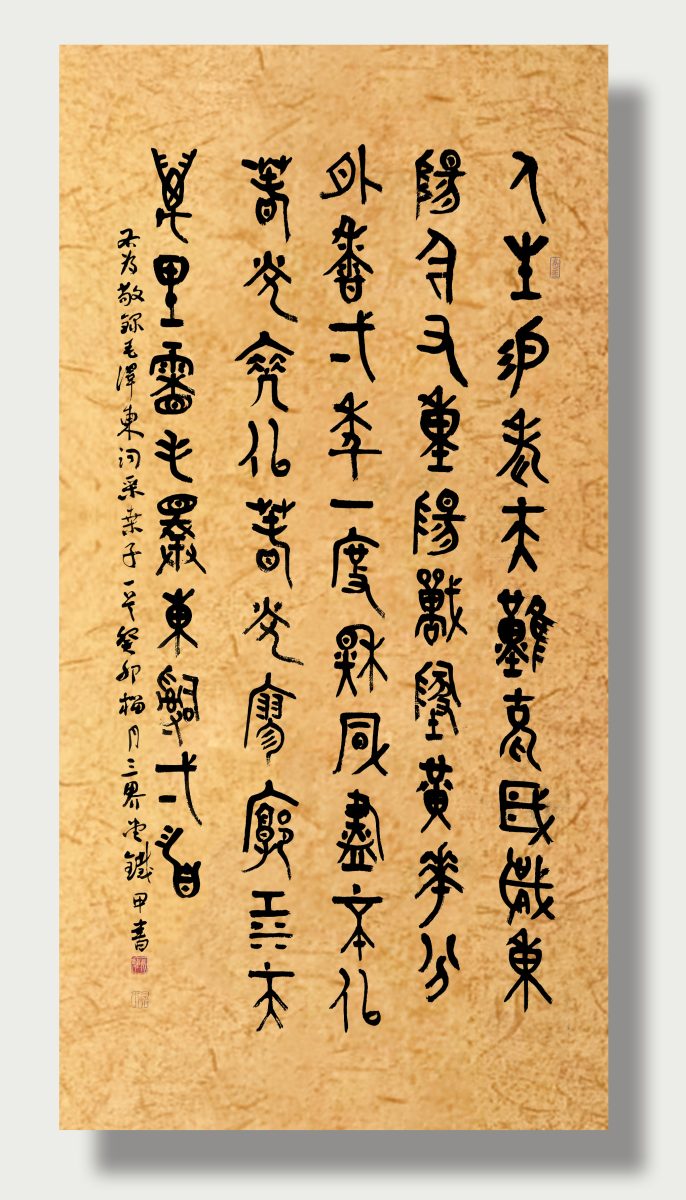 人生易老天難老歲歲重
陽今又重陽戰地黃花分
外香弌年一度秋風勁不似
春光勝似春光寥廓江天
萬里霜毛澤東詞弌首
右为敬錄毛澤東詞采桑子一首癸卯榴月三界堂鐵甲書